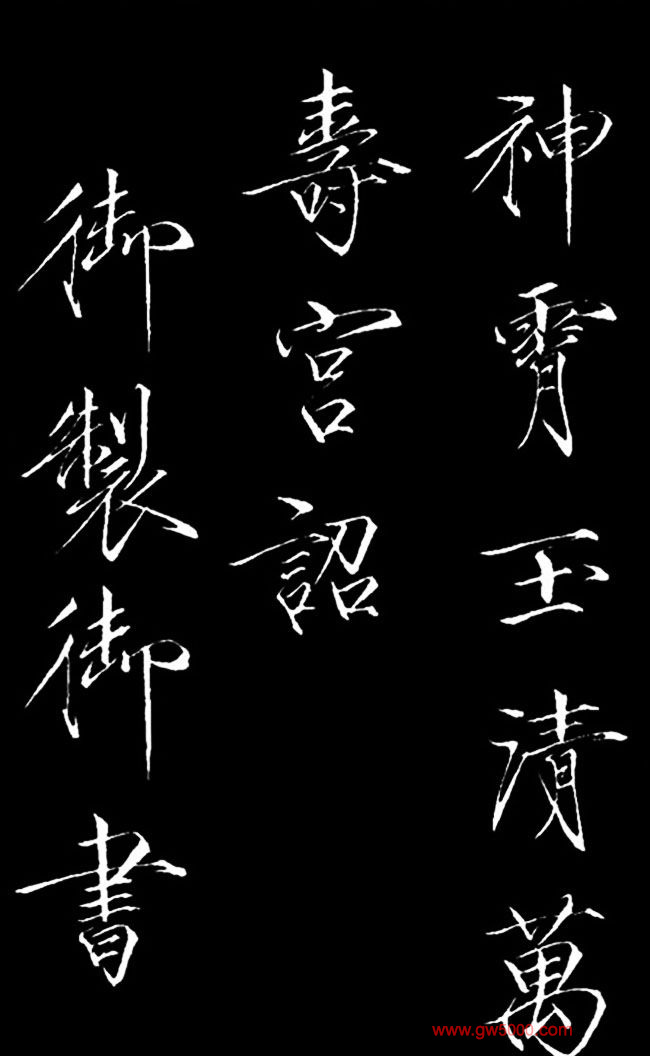 神霄玉清萬
壽宮詔
御製御書
www.gw5000.com